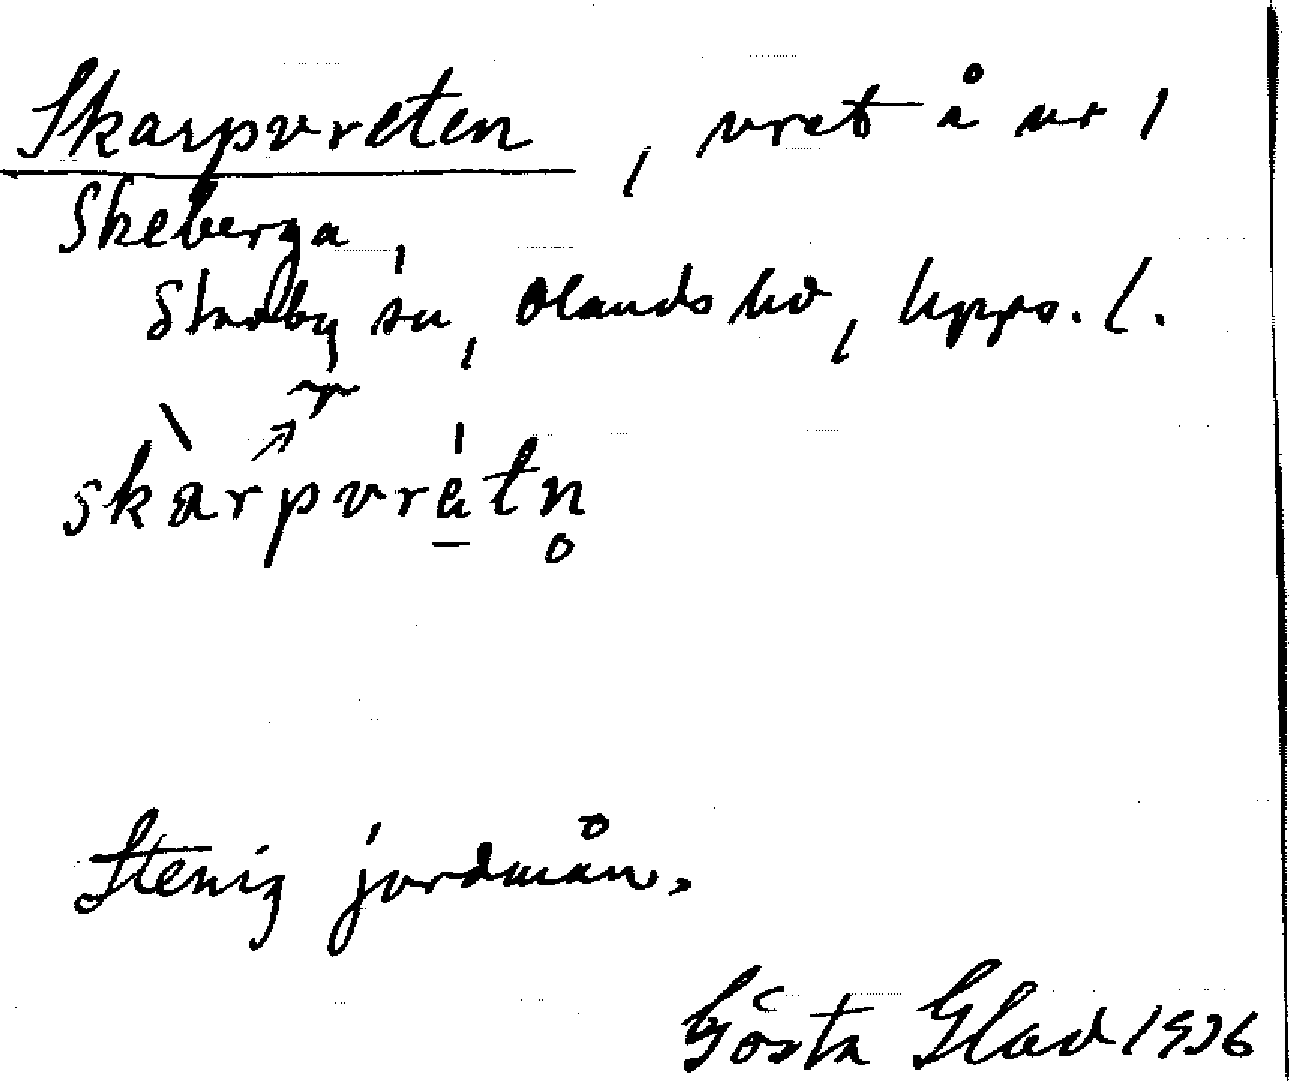 Skarpvreten, vret å nr 1
Skeberga,
Stavby sn, Olands hd, Upps. l.
skàrpvrétn̥
Stenig jordmån.
Gösta Glad 1936